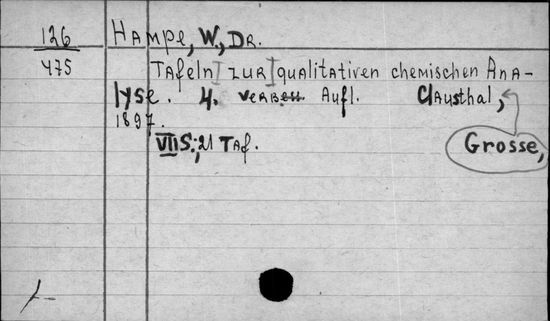 126
475
Hampe, W., Dr.
Tafeln zur qualitativen chemischen Ana-
lyse. 4. verbess. Aufl. Clausthal,
Grosse,
1897.
VIIS.; 21 Taf.